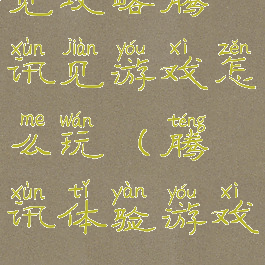 见攻略腾
xùn jiàn yóu xì zěn
讯见游戏怎
me wán téng
么玩（腾
xùn tǐ yàn yóu xì
讯体验游戏